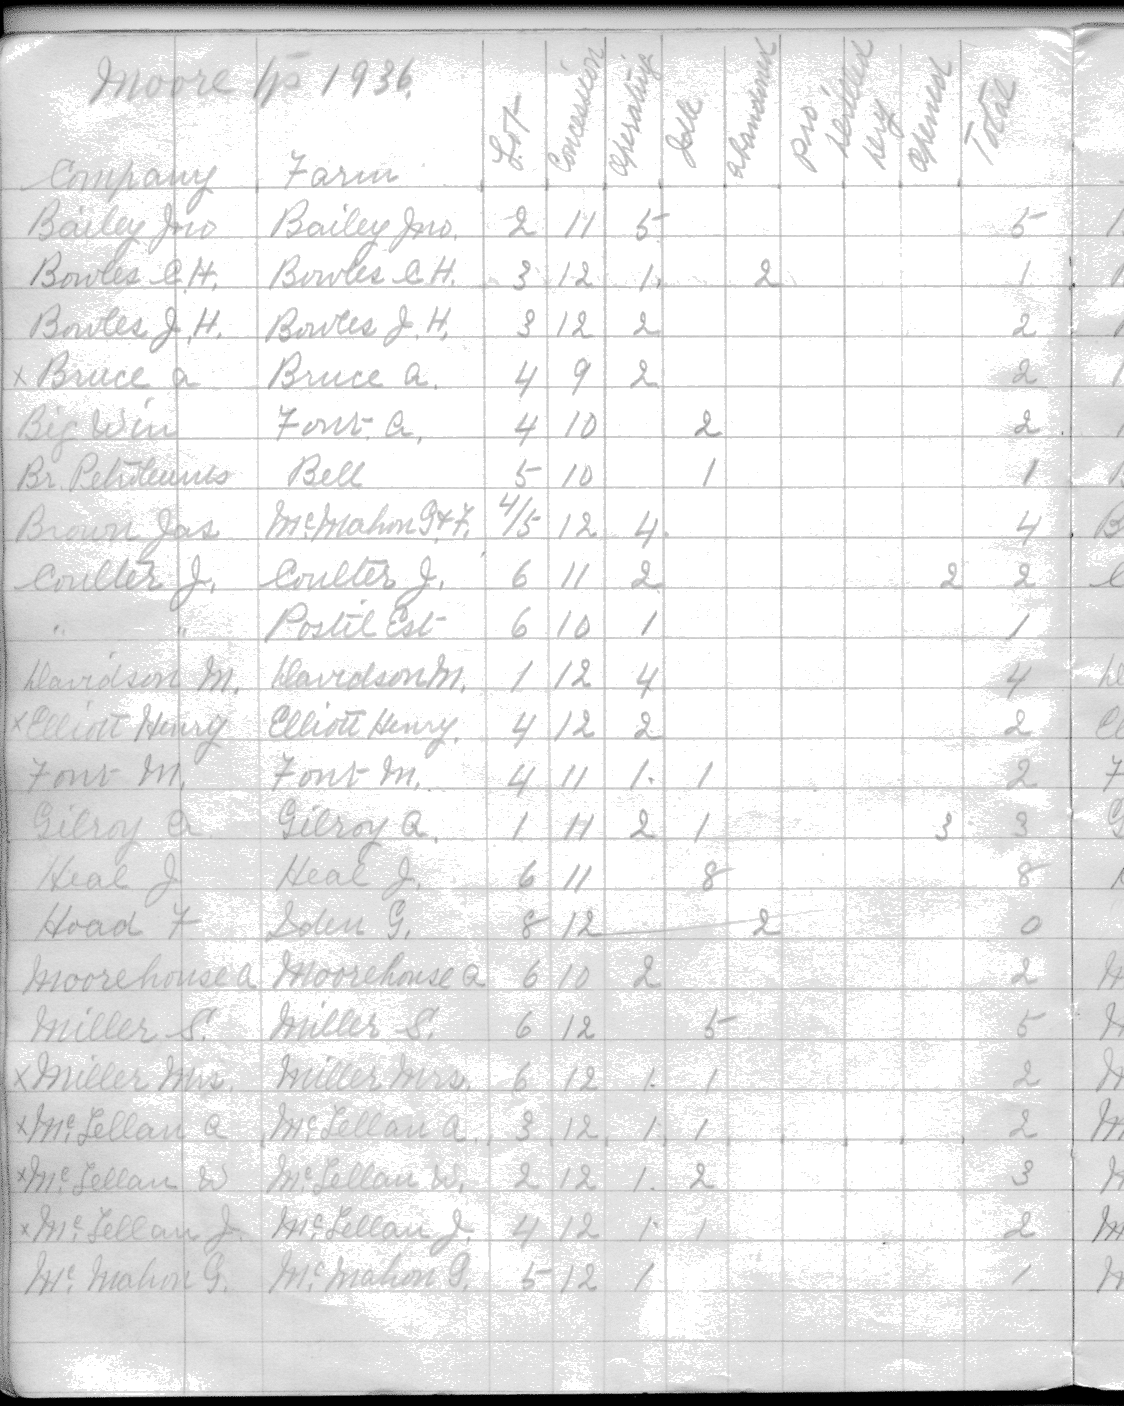 Moore Tp 1936.
Company Farm Lot Concession operating Idle abandoned pro' drilled dry opened Total
Bailey Jno Bailey Jno. 2 11 5 5
Bowles C.H. Bowles C.H. 3 12 1. 2 1
Bowles J.H. Bowles J.H. 3 12 2 2
x Bruce a Bruce a. 4 9 2 2
Big Win Font. a. 4 10 2 2
Br. Petroleums Bell 5 10 1 1
Brown Jas McMahon G.&F. 4/5 12 4. 4
Coulter J. Coulter J. 6 11 2 2 2
" " Postil Est 6 10 1 1
Davidson M. Davidson M. 1 12 4 4
x Elliott Henry Elliott Henry. 4 12 2 2
Font M. Font M. 4 11 1. 1 2
Gilroy a Gilroy a. 1 11 2 1 3 3
Heal J Heal J. 6 11 8 8
Hoad F G. 8 12 2 0
Moorehouse a Moorehouse a 6 10 2 2
Miller S. Miller S. 6 12 5 5
x Miller Mrs. Miller Mrs. 6 12 1. 1 2
x Mc.Lellan a Mc.Lellan a. 3 12 1. 1 2
x Mc.Lellan W Mc.Lellan W. 2 12 1. 2 3
x Mc.Lellan J. Mc.Lellan J. 4 12 1. 1 2
Mc. Mahon G. Mc. Mahon G. 5 12 1 1